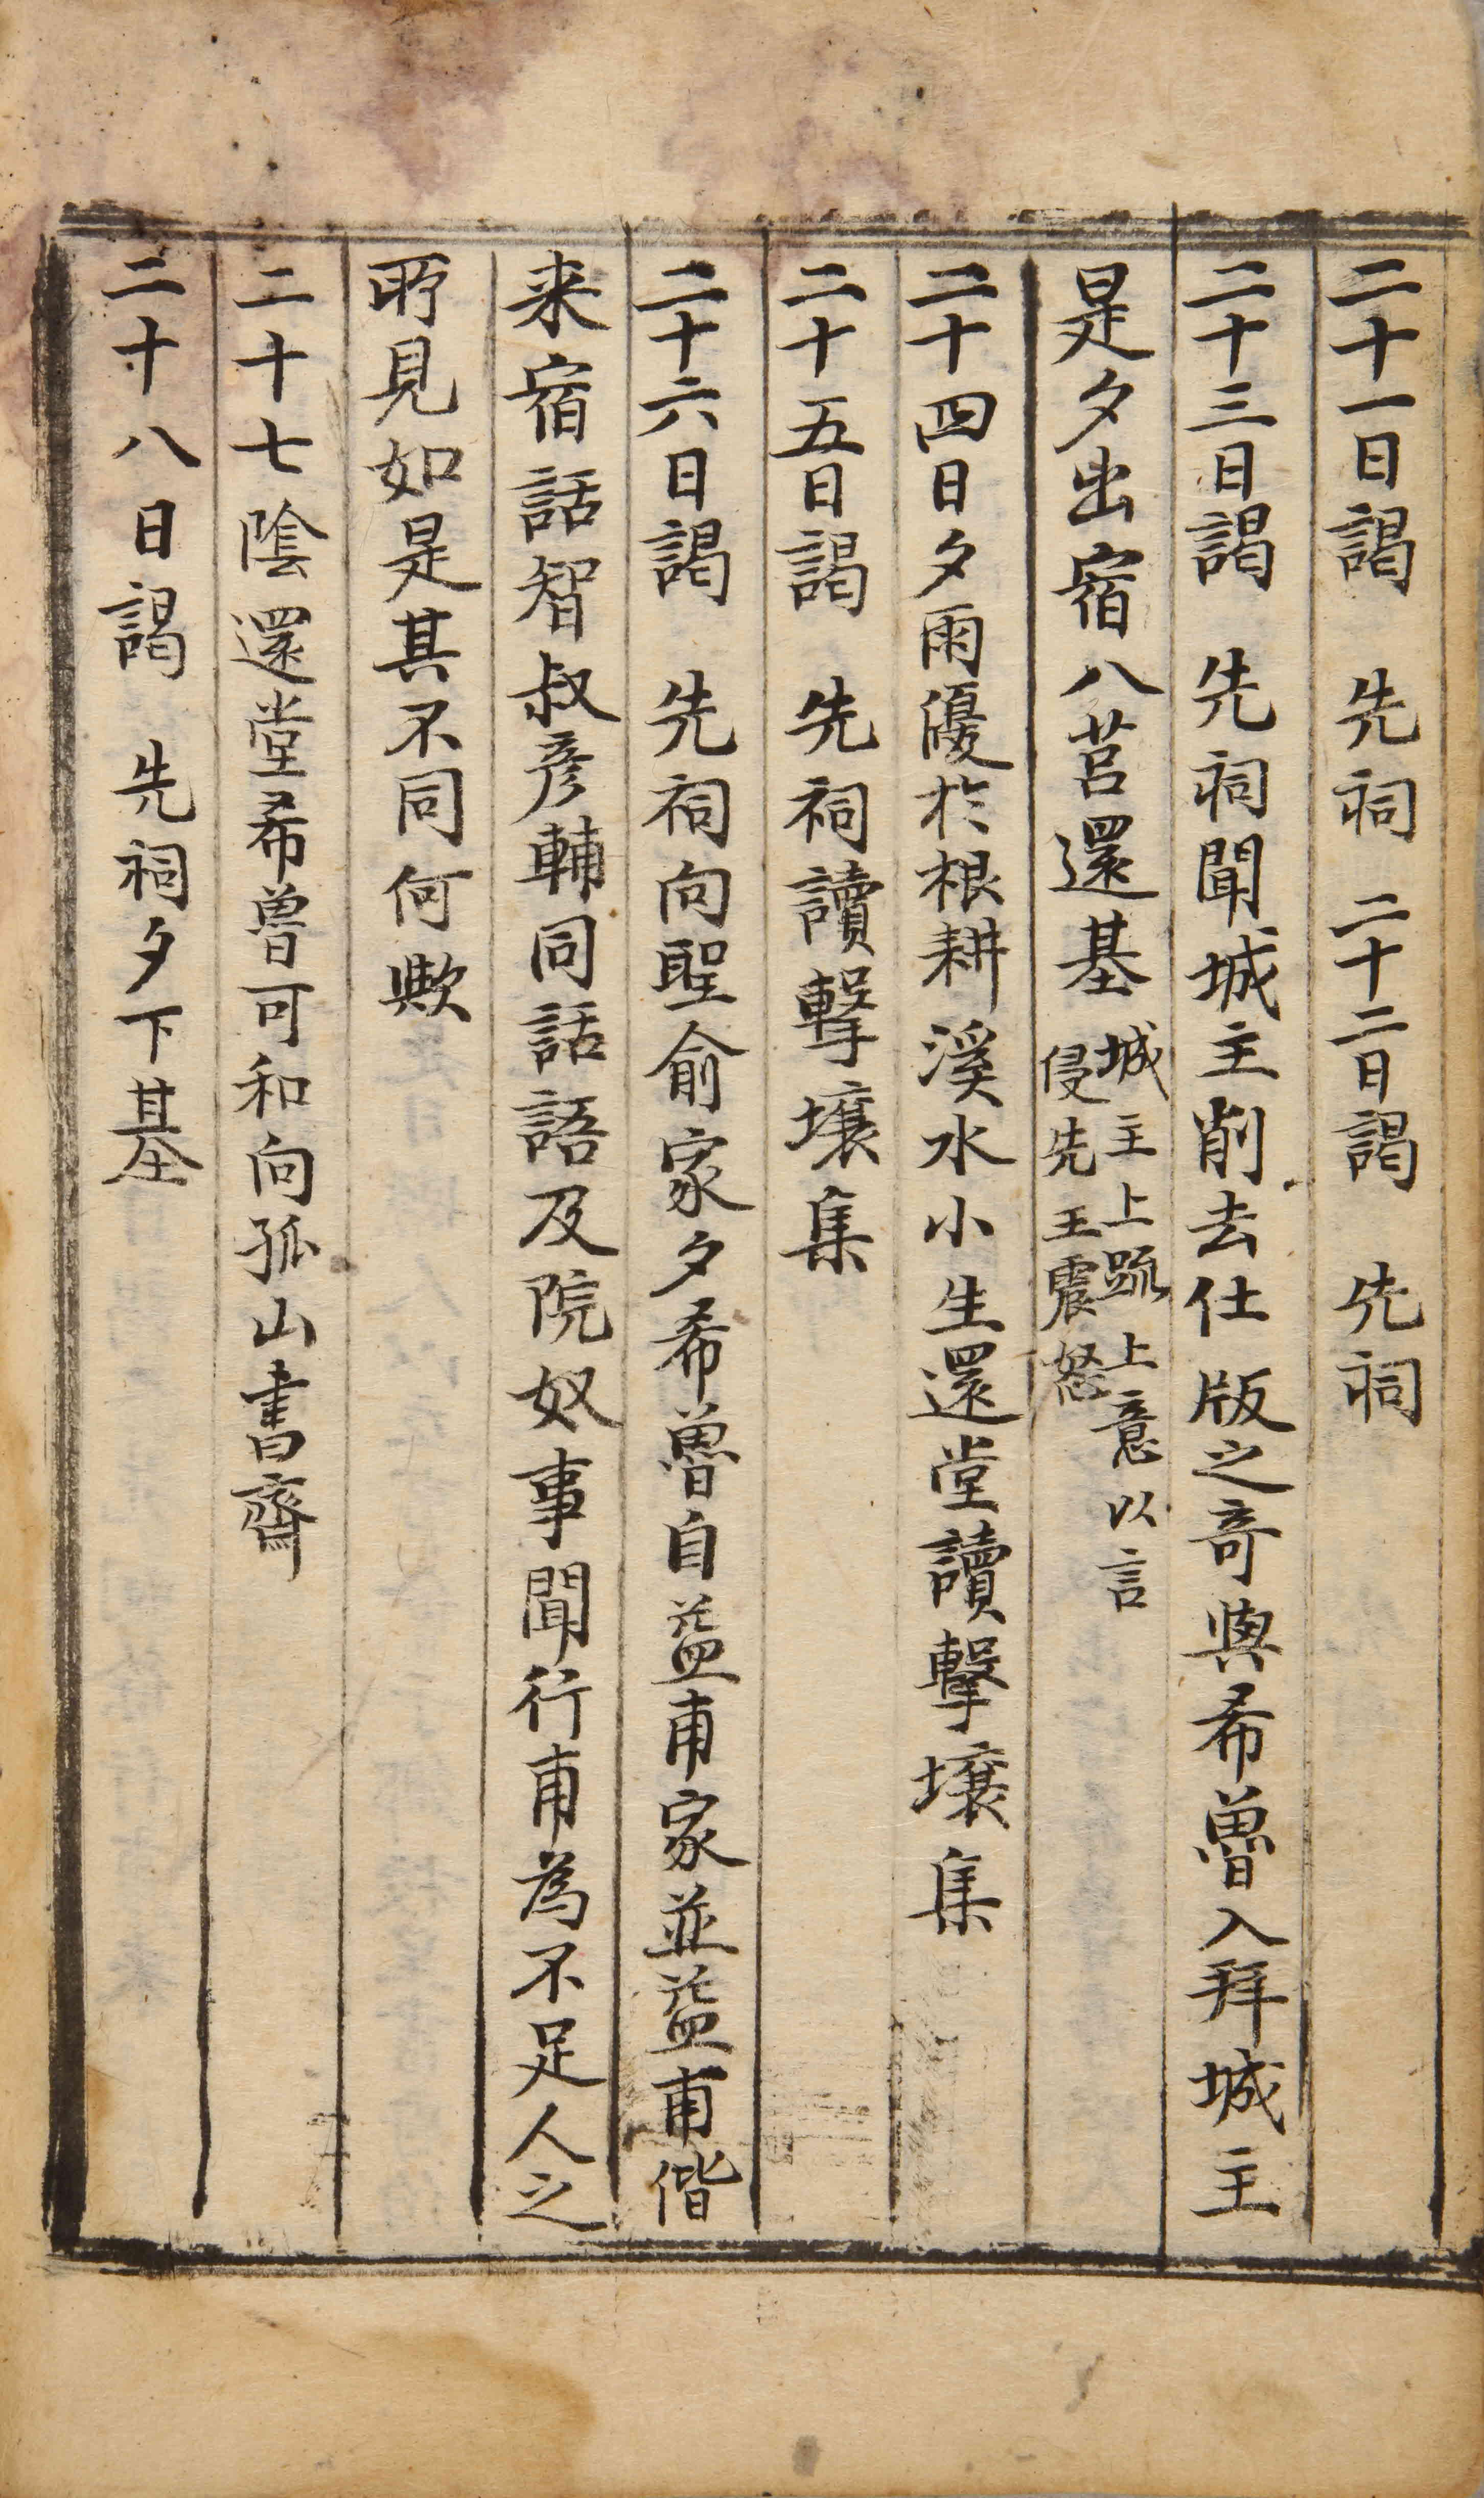 二十一日謁 先祠 二十二日謁 先祠
二十三日謁 先祠聞城主削去仕版之奇與希魯入拜城主
是夕出宿八莒還基城主上䟽上意以言
侵先王震怒
二十四日夕雨優於根耕溪水小生還堂讀擊壤集
二十五日謁 先祠讀擊壤集
二十六日謁 先祠向聖俞家夕希魯自益甫家並益甫偕
来宿話智叔彦輔同話語及院奴事聞行甫為不足人之
所見如是其不同何歟
二十七陰還堂希魯可和向孤山書齋
二十八日謁 先祠夕下基